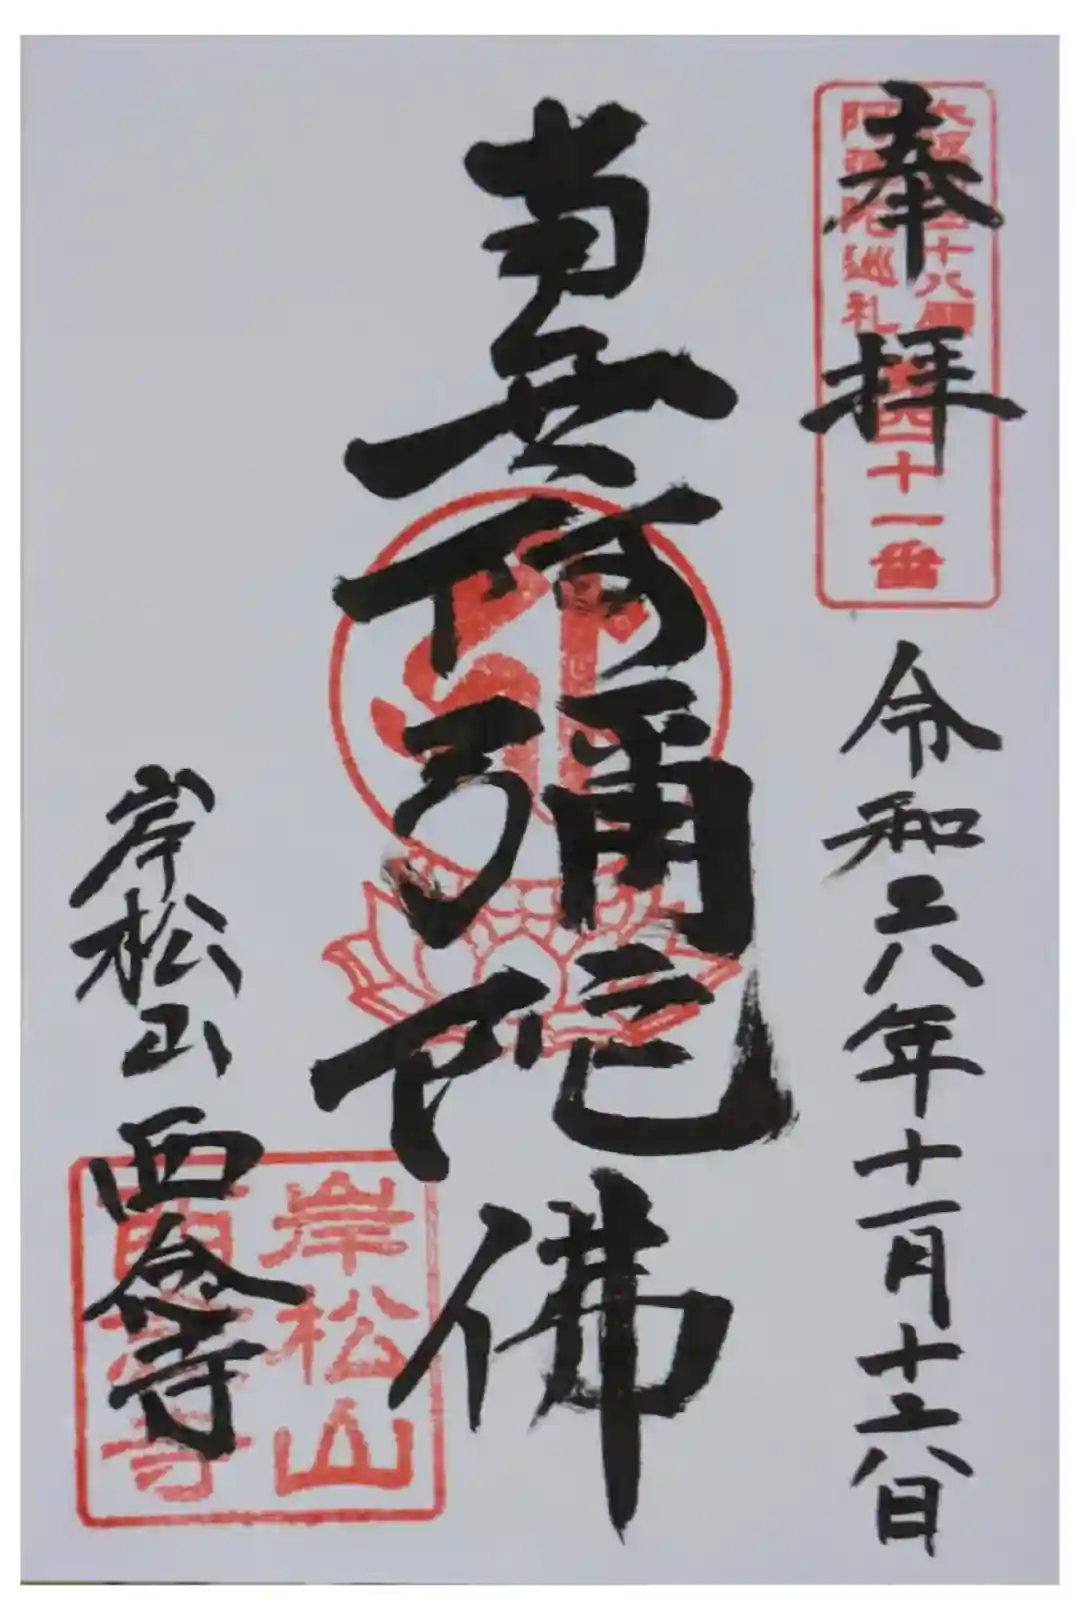 奉拝
令和六年十一月十六日
大阪四十八願
阿弥陀巡礼
第四十一番
南無阿彌陀佛
岸松山
西念寺
岸松山
西念寺